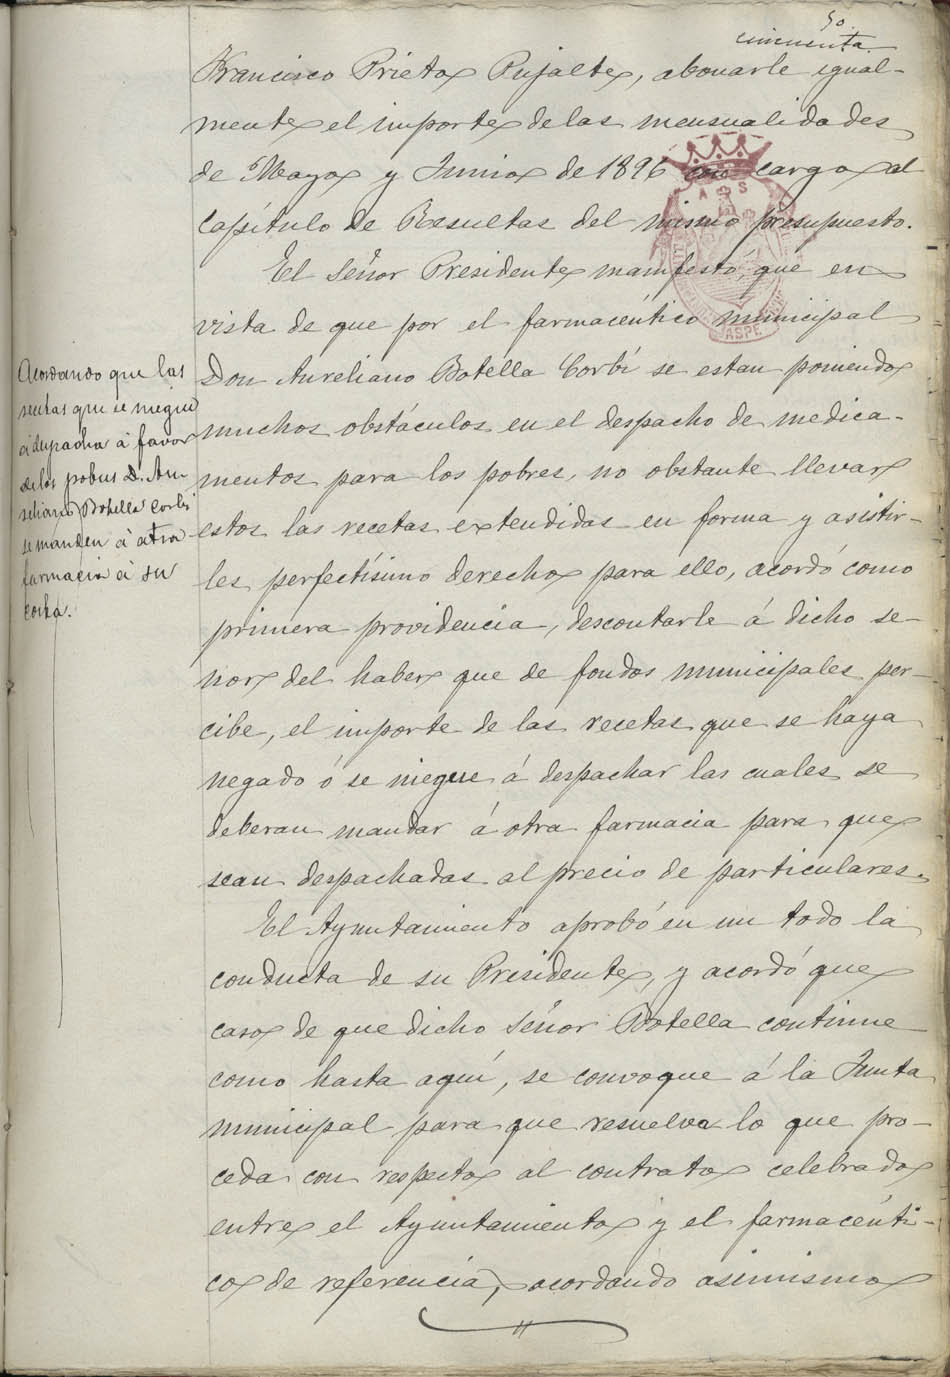 50.
cincuenta.
Francisco Prieto Pujalte, abonarle igual-
mente el importe de las mensualidades
de Mayo y Junio de 1896 con cargo al
Capítulo de Resultas del mismo presupuesto.
El Señor Presidente manifestó, que en
vista de que por el farmacéutico municipal
Don Aureliano Botella Corbí se estan poniendo
muchos obstáculos en el despacho de medica-
mentos para los pobres, no obstante llevar
estos las recetas extendidas en forma y asistir-
les perfectísimo derecho para ello, acordó como
primera providencia, descontarle á dicho se-
ñor del haber que de fondos municipales per-
cibe, el importe de las recetas que se haya
negado ó se niegue á despachar las cuales se
deberan mandar á otra farmacia para que
sean despachadas al precio de particulares.
El Ayuntamiento aprobó en un todo la
conducta de su Presidente, y acordó que
caso de que dicho Señor Botella continue
como hasta aquí, se convoque á la Junta
municipal para que resuelva lo que pro-
ceda con respecto al contrato celebrado
entre el Ayuntamiento y el farmacéuti-
co de referencia, acordando asimismo
Acordando que las
recetas que se niegue
á despachar á favor
de los pobres D. Au-
reliano Botella Corbi
se manden á otra
farmacia á su
costa.
ASPE